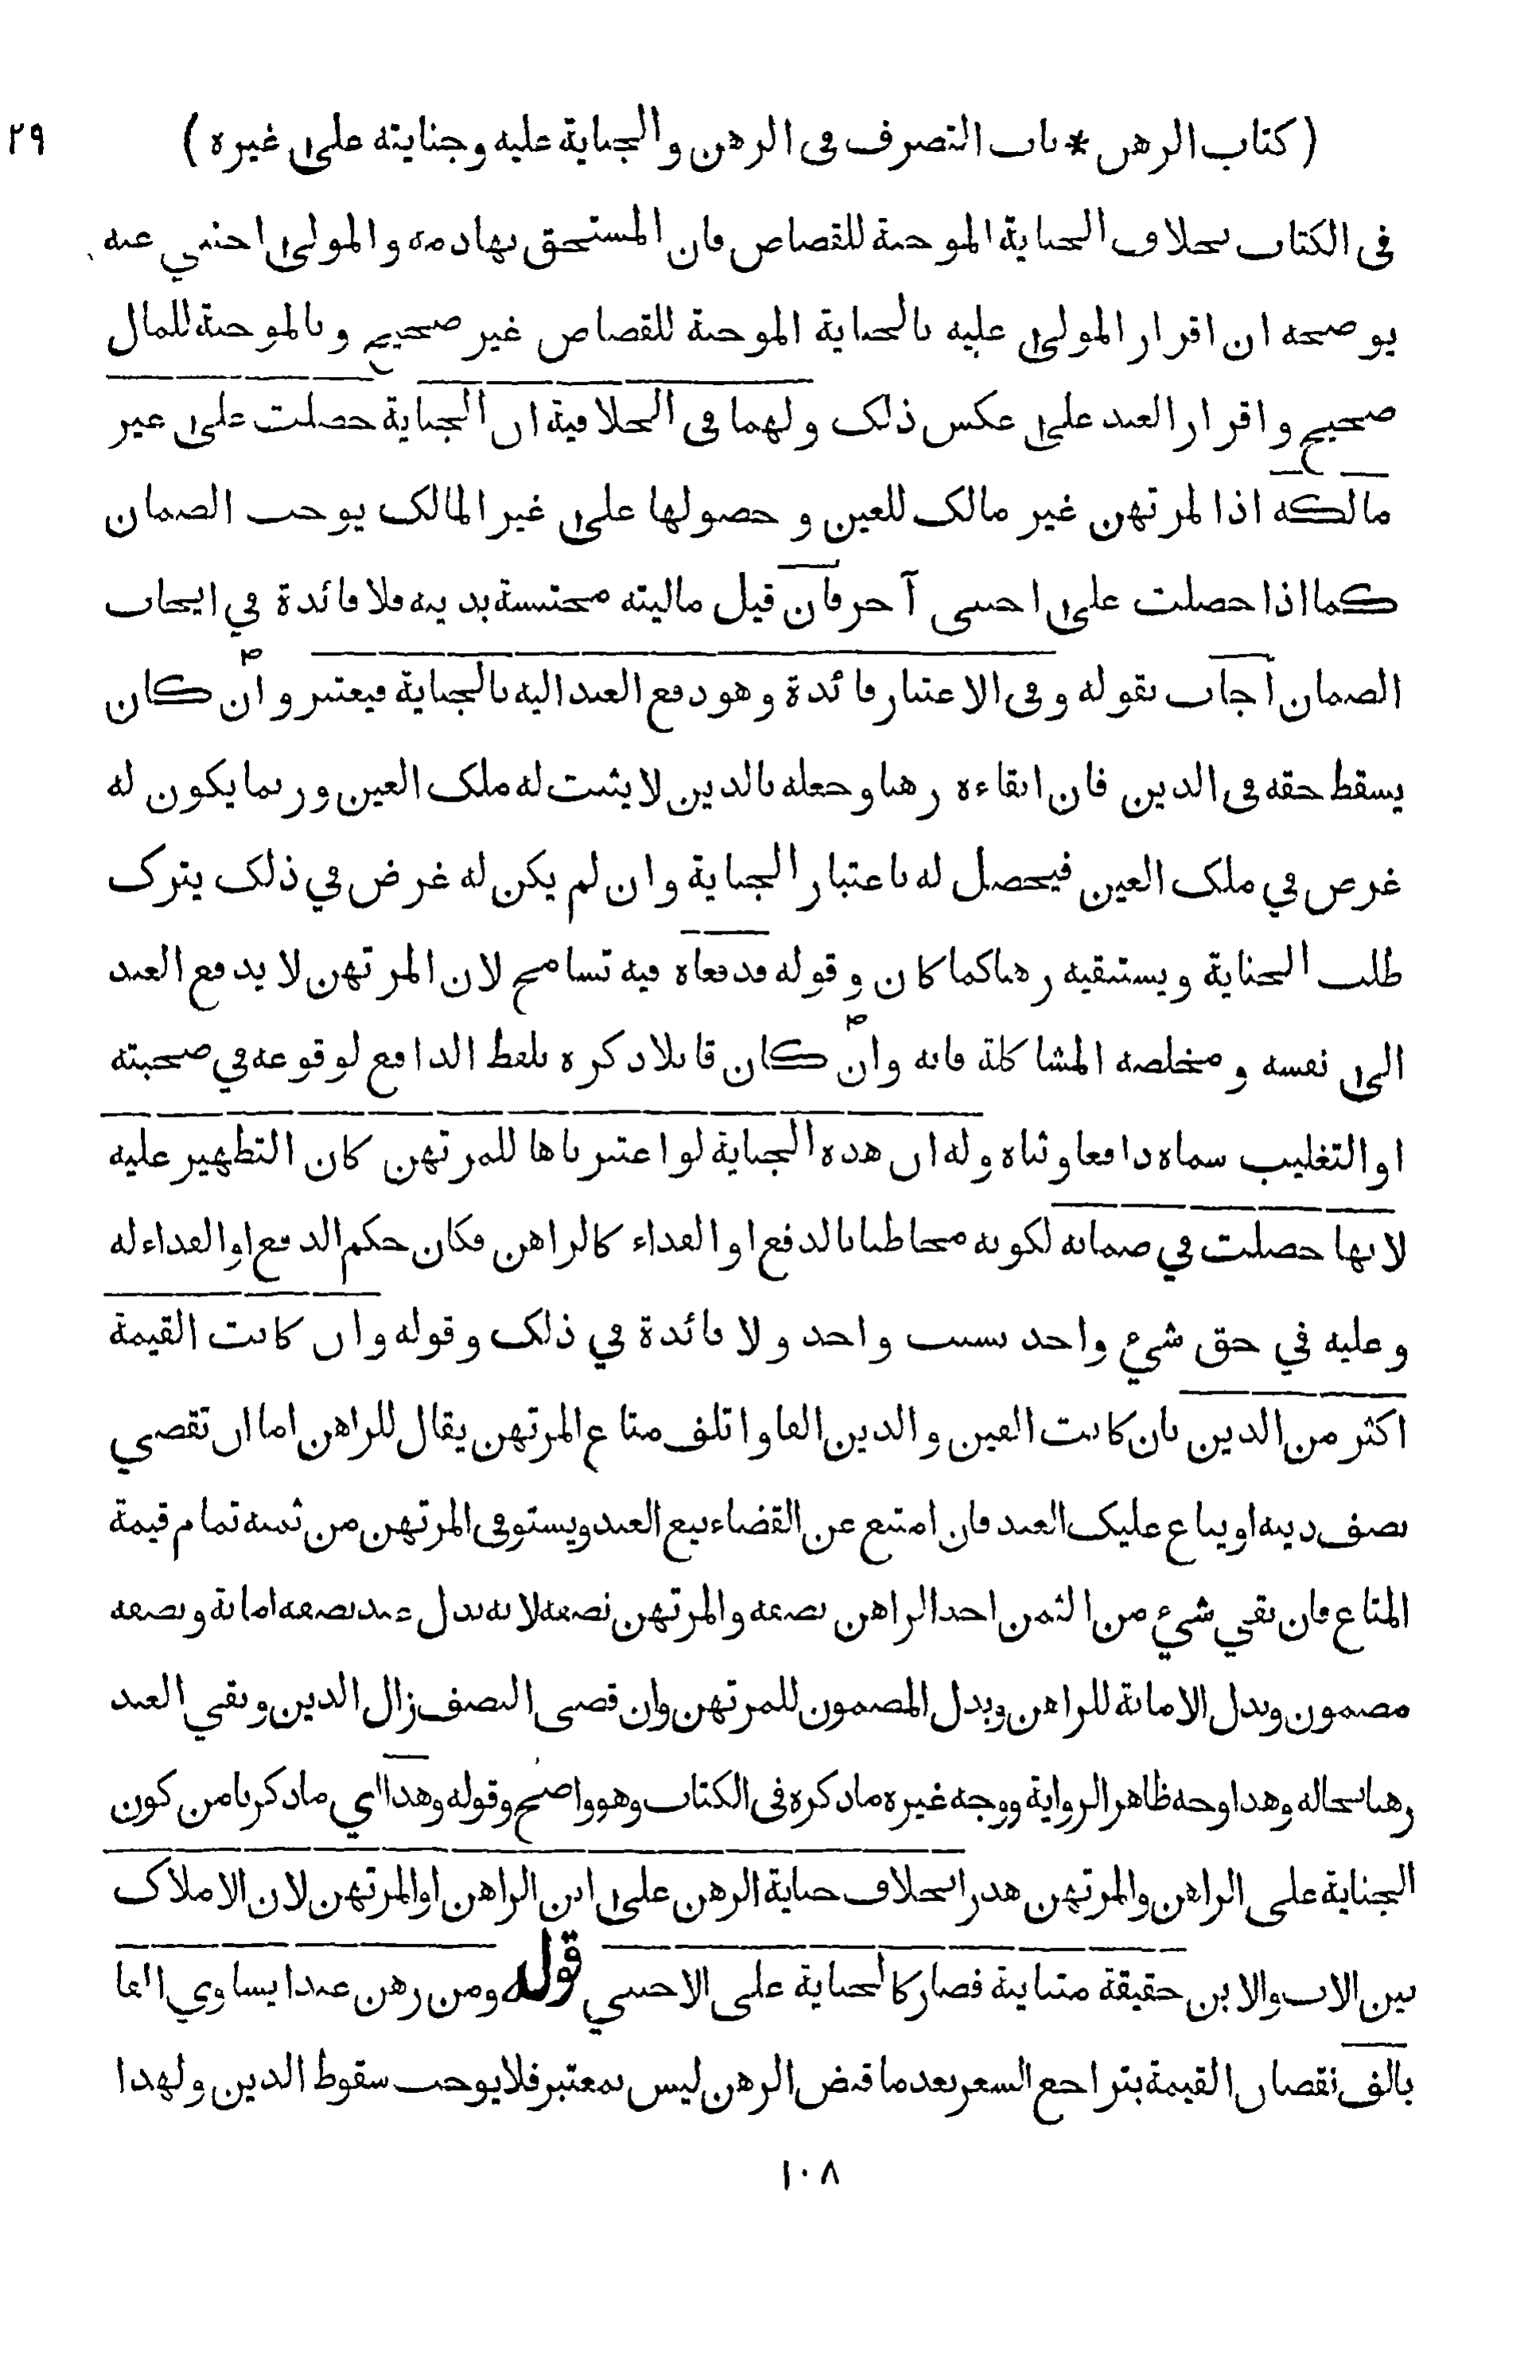 (كتاب الرهن * باب التصرف فى الرهن والجناية عليه وجنايته على غيره) ٢٩
فى الكتاب بخلاف الجناية الموجبة للقصاص فان المستحق بها دمه والمولى اجنبي عنه
يوضحه ان اقرار المولى عليه بالجناية الموجبة للقصاص غير صحيح وبالموجبة للمال
صحيح واقرار العبد على عكس ذلك ولهما فى الخلافية ان الجناية حصلت على غير
مالكه اذ المرتهن غير مالك للعين وحصولها على غير المالك يوجب الضمان
كما اذا حصلت على اجنبى آخر فان قيل ماليته محتبسة بدينه فلا فائدة في ايجاب
الضمان اجاب بقوله وفى الاعتبار فائدة وهو دفع العبد اليه بالجناية فيعتبر وان كان
يسقط حقه فى الدين فان ابقاءه رهنا وجعله بالدين لا يثبت له ملك العين وربما يكون له
غرض في ملك العين فيحصل له باعتبار الجناية وان لم يكن له غرض في ذلك يترك
طلب الجناية ويستبقيه رهنا كما كان وقوله فدفعاه فيه تسامح لان المرتهن لا يدفع العبد
الى نفسه ومخلصه المشاكلة فانه وان كان قابلا ذكره بلفظ الدافع لوقوعه في صحبته
او التغليب سماه دافعا وثناه وله ان هذه الجناية لو اعتبرناها للمرتهن كان التطهير عليه
لانها حصلت في ضمانه لكونه مخاطبا بالدفع او الفداء كالراهن فكان حكم الدفع او الفداء له
وعليه في حق شيء واحد بسبب واحد ولا فائدة في ذلك وقوله وان كانت القيمة
اكثر من الدين بان كانت الفين والدين الفا واتلف متاع المرتهن يقال للراهن اما ان تقضي
نصف دينه او يباع عليك العبد فان امتنع عن القضاء بيع العبد ويستوفى المرتهن من ثمنه تمام قيمة
المتاع فان بقي شيء من الثمن اخذ الراهن نصفه والمرتهن نصفه لانه بدل عبد نصفه امانة ونصفه
مضمون وبدل الامانة للراهن وبدل المضمون للمرتهن وان قضى النصف زال الدين وبقي العبد
رهنا بحاله وهذا وجه ظاهر الرواية ووجه غيره ما ذكره فى الكتاب وهو واضح وقوله وهذا اي ما ذكرنا من كون
الجناية على الراهن والمرتهن هدرا بخلاف جناية الرهن على ابن الراهن او المرتهن لان الاملاك
بين الاب والابن حقيقة متباينة فصار كالجناية على الاجنبي قوله ومن رهن عبدا يساوي الفا
بالف نقصان القيمة بتراجع السعر بعد ما قبض الرهن ليس بمعتبر فلا يوجب سقوط الدين ولهذا
١٠٨